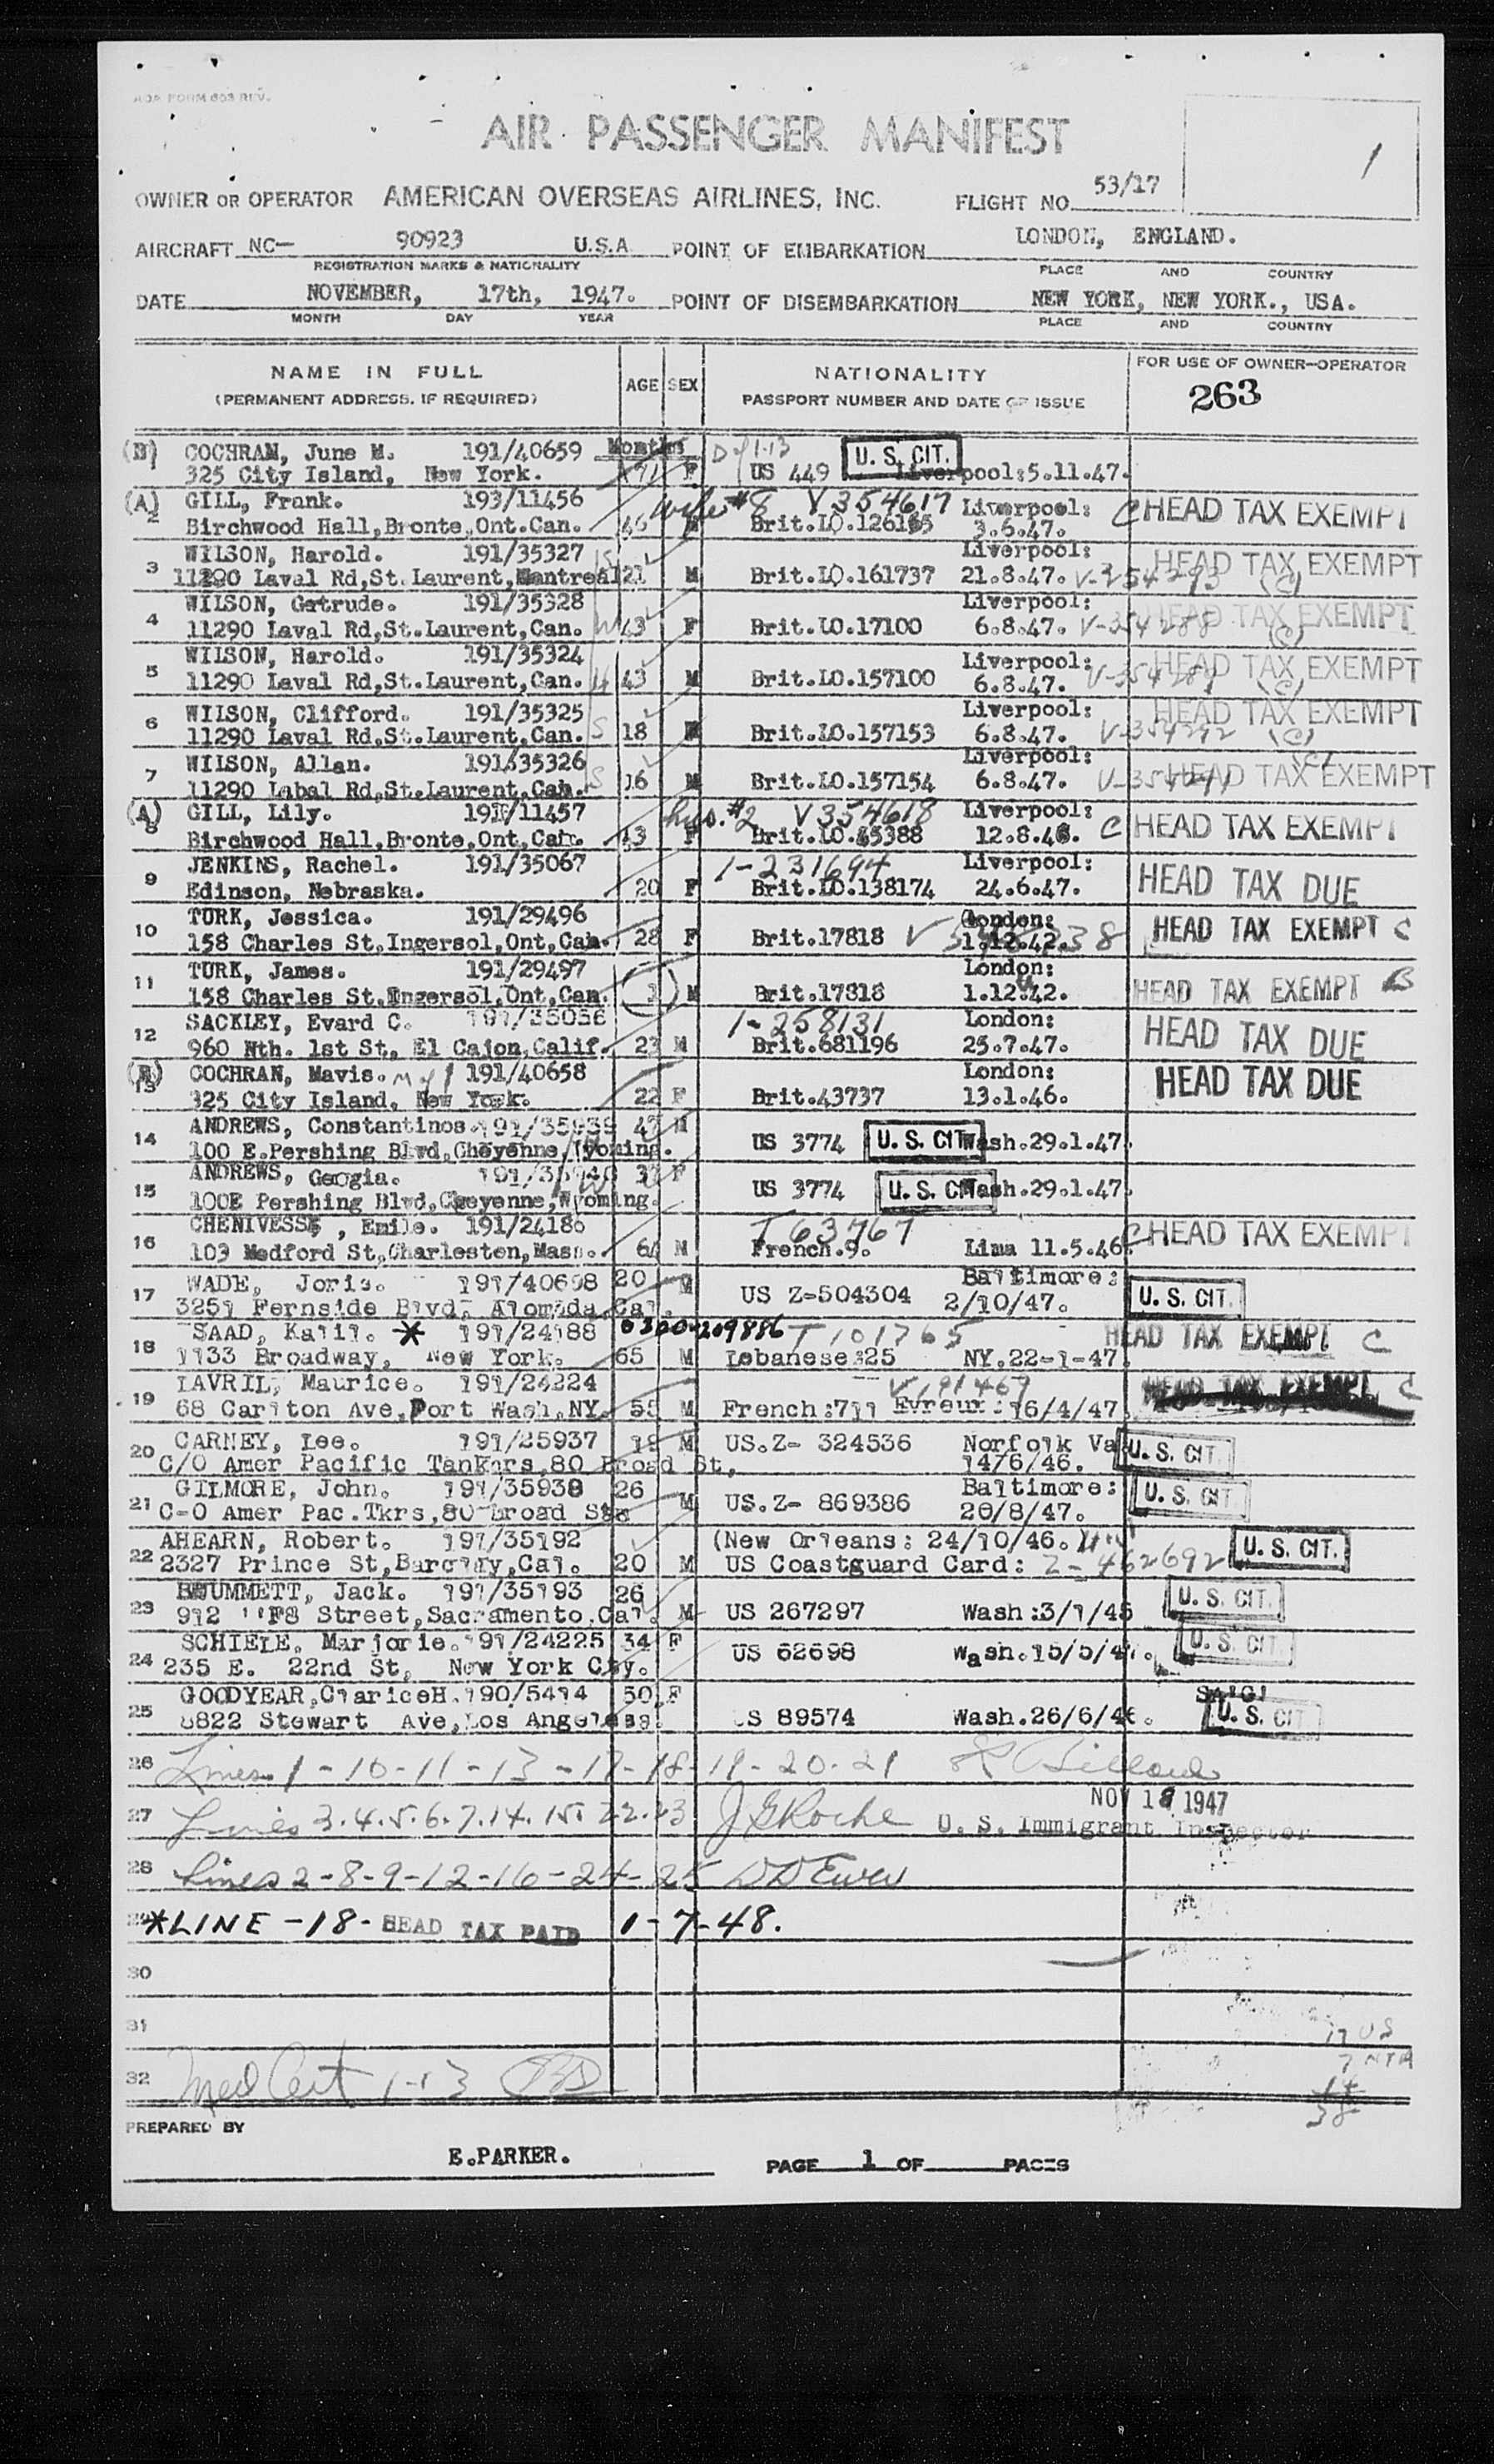 AOA FORM 603 REV.
AIR PASSENGER MANIFEST
1
OWNER OR OPERATOR AMERICAN OVERSEAS AIRLINES, INC. FLIGHT NO. 53/17
AIRCRAFT NC— 90923 U.S.A. POINT OF EMBARKATION LONDON, ENGLAND.
REGISTRATION MARKS & NATIONALITY PLACE AND COUNTRY
DATE NOVEMBER, 17th, 1947. POINT OF DISEMBARKATION NEW YORK, NEW YORK., USA.
MONTH DAY YEAR PLACE AND COUNTRY
NAME IN FULL AGE SEX NATIONALITY FOR USE OF OWNER—OPERATOR
(PERMANENT ADDRESS, IF REQUIRED) PASSPORT NUMBER AND DATE OF ISSUE 263
(B) COCHRAN, June M. 191/40659 Months D of 1-13 U. S. CIT.
325 City Island, New York. F US 449 Liverpool:5.11.47.
(A) GILL, Frank. 193/11456 wife #8 V354617 Liverpool: C HEAD TAX EXEMPT
2 Birchwood Hall,Bronte,Ont.Can. 46 M Brit.LO. 3.6.47.
WILSON, Harold. 191/35327 S Liverpool: HEAD TAX EXEMPT
3 11290 Laval Rd,St.Laurent,Montreal 21 M Brit.LO.161737 21.8.47. V-354293 (C)
WILSON, Getrude. 191/35328 Liverpool: HEAD TAX EXEMPT
4 11290 Laval Rd,St.Laurent,Can. W 43 F Brit.LO.17100 6.8.47. V-354288 (C)
WILSON, Harold. 191/35324 Liverpool: HEAD TAX EXEMPT
5 11290 Laval Rd,St.Laurent,Can. H 43 M Brit.LO.157100 6.8.47. (C)
WILSON, Clifford. 191/35325 Liverpool: HEAD TAX EXEMPT
6 11290 Laval Rd,St.Laurent,Can. S 18 M Brit.LO.157153 6.8.47. V-354292 (C)
WILSON, Allan. 191/35326 Liverpool: (C)
7 11290 Labal Rd,St.Laurent,Can. S 16 M Brit.LO.157154 6.8.47. V-354291 HEAD TAX EXEMPT
(A) GILL, Lily. 191/11457 hus. #2 V354618 Liverpool: C HEAD TAX EXEMPT
8 Birchwood Hall,Bronte,Ont,Can. 43 F Brit.LO.45388 12.8.46.
JENKINS, Rachel. 191/35067 1-231694 Liverpool: HEAD TAX DUE
9 Edinson, Nebraska. 20 F Brit.LO.138174 24.6.47.
TURK, Jessica. 191/29496 London: HEAD TAX EXEMPT C
10 158 Charles St,Ingersol,Ont,Can. 28 F Brit.17818 1.12.42.
TURK, James. 191/29497 London:
11 158 Charles St.Ingersol,Ont,Can. 1 M Brit.17818 1.12.42. HEAD TAX EXEMPT B
SACKLEY, Evard C. 191/35056 1-258131 London: HEAD TAX DUE
12 960 Nth. 1st St, El Cajon,Calif. 23 M Brit.681196 25.7.47.
(B) COCHRAN, Mavis. M of 1 191/40658 London: HEAD TAX DUE
13 325 City Island, New York. 22 F Brit.43737 13.1.46.
ANDREWS, Constantinos. 191/35939 47 M
14 100 E.Pershing Blvd,Cheyenne,Wyoming. US 3774 U. S. CIT. Wash.29.1.47.
ANDREWS, Georgia. 191/35940 37 F
15 100E Pershing Blvd,Cheyenne,Wyoming. US 3774 U. S. CIT. Wash.29.1.47.
CHENIVESSE, Emile. 191/24180 T 63767 C HEAD TAX EXEMPT
16 103 Medford St,Charleston,Mass. 64 M French.9. Lima 11.5.46.
WADE, Joris. 191/40608 20 M Baltimore:
17 3251 Fernside Blvd, Alomeda,Cal. US Z-504304 2/10/47. U. S. CIT.
SAAD, Kalil. * 191/24188 0300-209886 T 101765 HEAD TAX EXEMPT C
18 1133 Broadway, New York. 65 M Lebanese:25 NY.22-1-47.
LAVRIL, Maurice. 191/24224 V191469 HEAD TAX EXEMPT C
19 68 Carlton Ave,Port Wash,NY. 55 M French:711 Evreux: 16/4/47.
CARNEY, Lee. 191/25937 19 M US.Z- 324536 Norfolk Va
20 C/O Amer Pacific Tankers,80 Broad St, 14/6/46. U. S. CIT.
GILMORE, John. 191/35938 26 Baltimore:
21 C-O Amer Pac.Tkrs,80 Broad St M US.Z- 869386 20/8/47. U. S. CIT.
AHEARN, Robert. 191/35192 (New Orleans: 24/10/46.
22 2327 Prince St,Barclay,Cal. 20 M US Coastguard Card: Z-462692 U. S. CIT.
BRUMMETT, Jack. 191/35193 26 U. S. CIT.
23 912 "F" Street,Sacramento.Cal. M US 267297 Wash:3/1/45
SCHIELE, Marjorie. 191/24225 34 F
24 235 E. 22nd St, New York Cty. US 62698 Wash.15/5/47. U. S. CIT.
GOODYEAR,ClariceH. 190/5414 50 F
25 8822 Stewart Ave,Los Angeles. US 89574 Wash.26/6/46. U. S. CIT
26 Lines 1-10-11-13-17-18-19-20-21
NOV 18 1947
27 Lines 3.4.5.6.7.14.15. 22.23 J G Roche U. S. Immigrant Inspector
28 Lines 2-8-9-12-16-24-25
*LINE -18- HEAD TAX PAID 1-7-48.
30
31
17 US
32 Med Cert 1-13
PREPARED BY
E.PARKER.
PAGE 1 OF PAGES